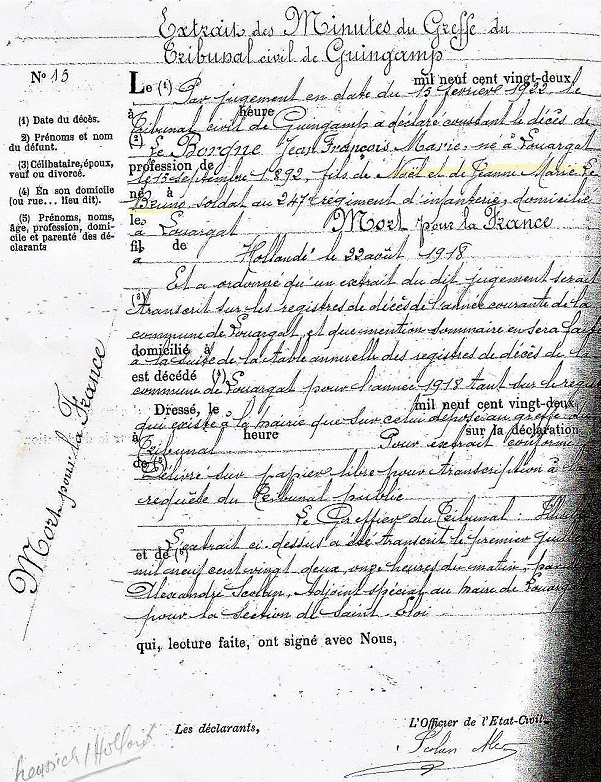 Extrait des Minutes du Greffe du
Tribunal civil de Guingamp
N° 15
(1) Date du décès.
2) Prénoms et nom
du défunt.
(3) Célibataire, époux,
veuf ou divorcé.
(4) En son domicile
(ou rue... lieu dit).
(5) Prénoms, noms,
âge, profession, domi-
cile et parenté des dé-
clarants
Mort pour la France
Le (1) mil neuf cent vingt-deux
Par jugement en date du 15 février 1922 le
à heure
Tribunal civil de Guingamp a déclaré constant le décès de
(2)
Le Borgne Jean François Marie né à Louargat
profession de
le 15 septembre 1892, fils de Noël et de Jeanne Marie Le
né à
soldat au 247e régiment d'infanterie, domicilié
le
à Louargat Mort pour la France
fil de
a le 22 août 1918
Et a ordonné qu'un extrait du dit jugement serait
transcrit sur les registres de décès de l'année courante de la
commune de Louargat, et que mention sommaire en sera
domicilié à
à la suite de la table annuelle des registres de décès de la
est décédé (4)
commune de Louargat pour l'année 1918 tant sur le
Dressé, le mil neuf cent vingt-deux
qui existe à la mairie que sur celui déposé au greffe
à heure sur la déclaration
Tribunal Pour extrait conforme
de (5)
Délivré sur papier libre pour transcription à
requête du Tribunal public
Le Greffier du Tribunal
et de (5)
L'extrait ci-dessus a été transcrit le premier
mil neuf cent vingt deux, onze heures du matin, par
Alexandre Scolan, Adjoint spécial au maire de
pour la section de Saint-Eloi
qui, lecture faite, ont signé avec Nous,
Les déclarants,
L'Officier de l'Etat-Civil,
Scolan